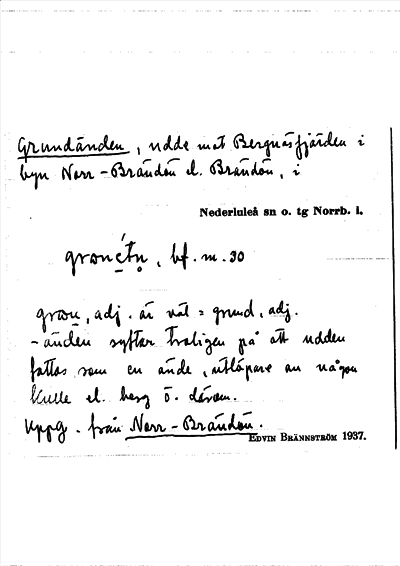 Grundänden, udde mot Bergnäsfjärden i
byn Norr-Brändön el. Brändön, i
Nederluleå sn o. tg Norrb. l.
bf. m. 30
adj. är väl = grund, adj.
-änden syftar troligen på att udden
fattas som en ände, utlöpare av någon
kulle el. berg ö. därom.
Uppg. från Norr-Brändön.
EDVIN BRÄNNSTRÖM 1937.